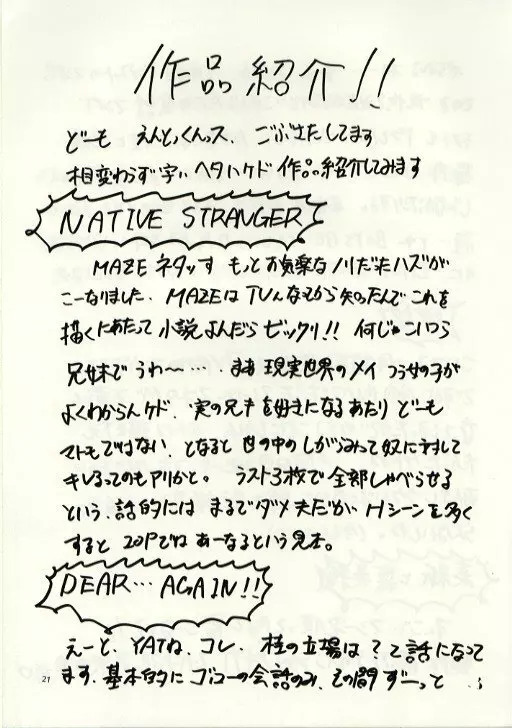 作品紹介!!
どーも えんどぅくんっス、ごぶさたしてます
相変わらず字ぃヘタいケド作品紹介してみます
NATIVE STRANGER
MAZEネタっす もっとお気楽なノリだったハズが
こーなりました、MAZEはTVんなもから知ったんでこれを
描くにあたって小説よんだらビックリ!! 何じゃこいつら
兄妹でうわ〜…。まあ現実世界のメイっつう女の子が
よくわからんケド、実の兄キを好きになるあたりどーも
マトモではない、となると世の中のしがらみって奴に対して
キレるってのもアリかと。ラスト3枚で全部しゃべらせる
という、話的にはまるでダメ夫だが、Hシーンを多く
すると20Pではあーなるという見本。
DEAR… AGAIN!!
えーと、YATね、コレ、桂の立場は?と話になって
ます、基本的にゴローの会話のみ、その間ずーっと
21